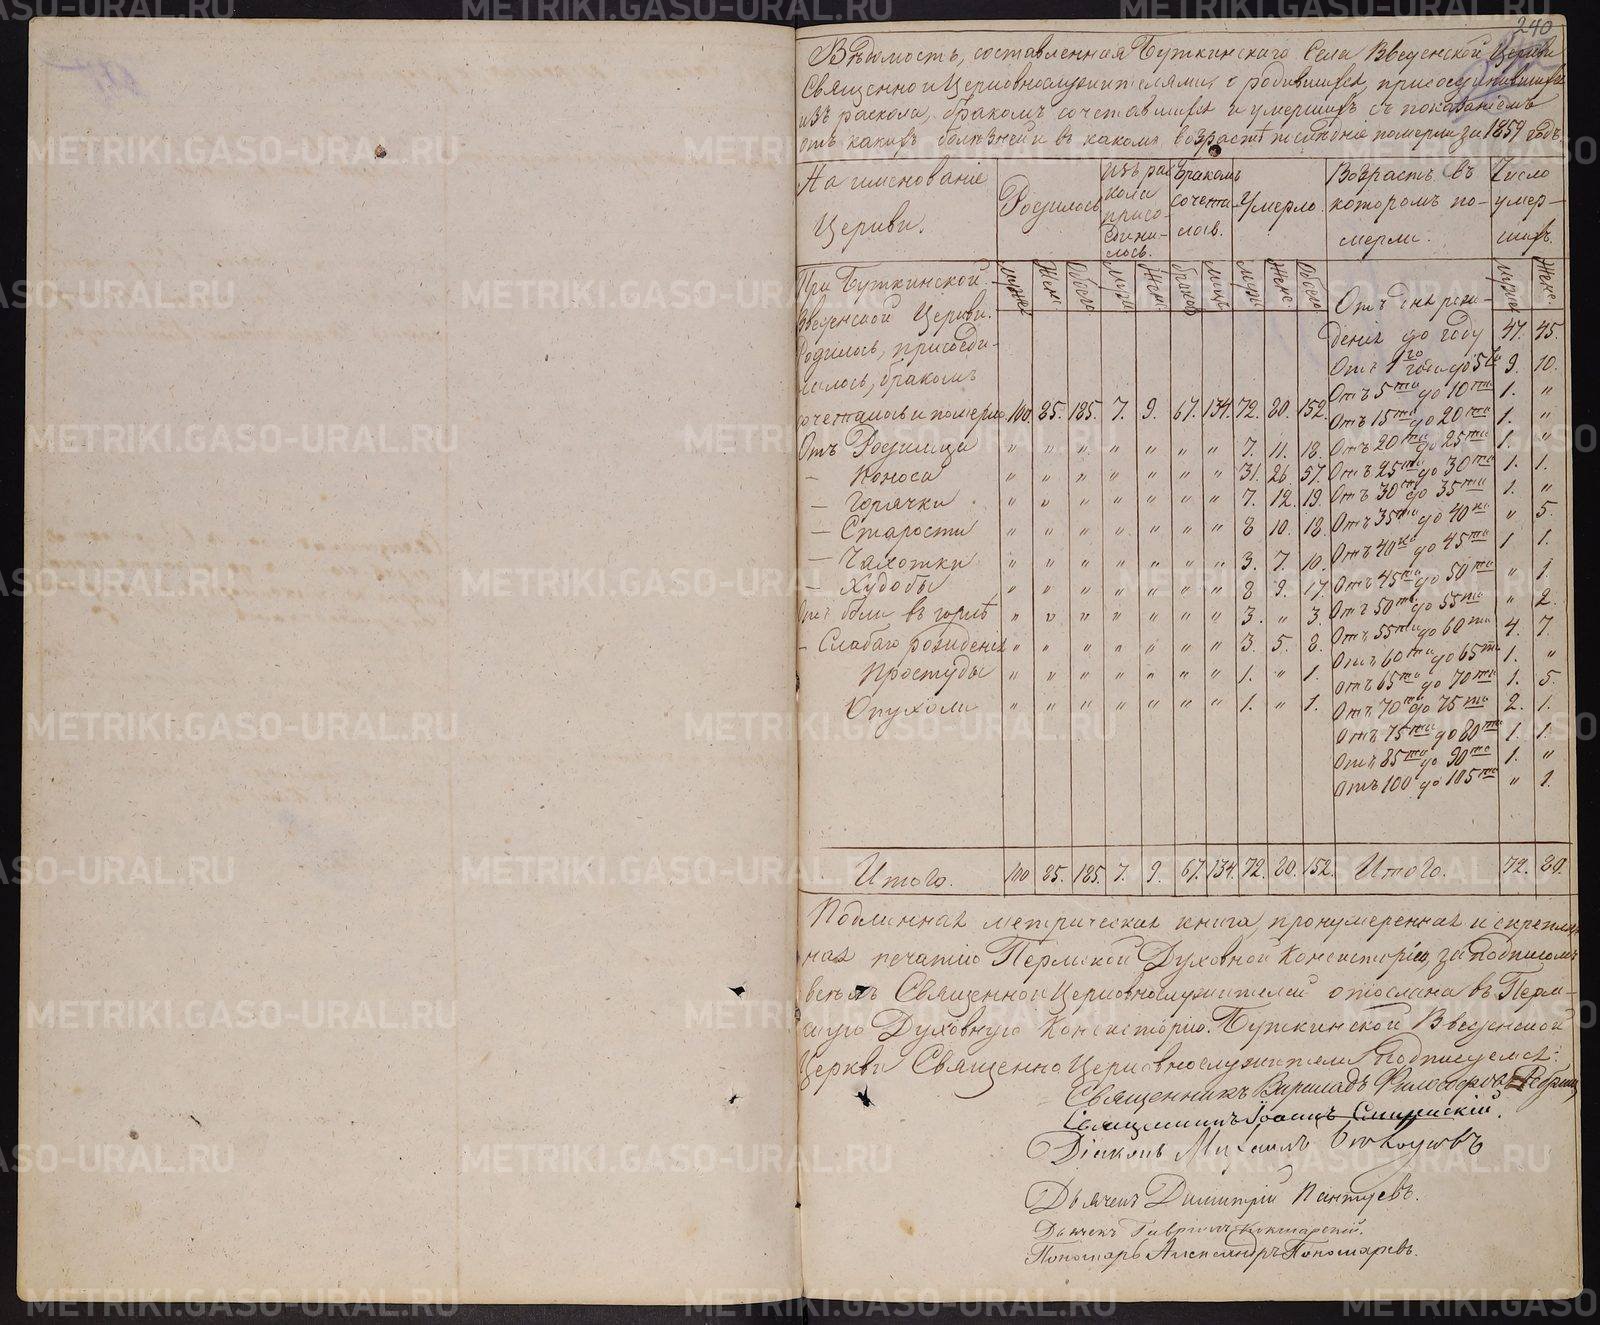 240
Вѣдомость, составленная Буткинскаго Села Введенской Церкви
Священно и Церковнослужителями, о родившихся, присоединившихся
изъ раскола, бракомъ сочетавшихся и умершихъ съ показаніемъ
отъ какихъ болѣзней и въ какомъ возрастѣ людніе померли за 1859 годъ.
Наименованіе Церкви.
Родилось
Изъ раскола присоединилось.
Бракомъ сочеталось.
Умерло.
Возрастъ въ которомъ померли.
Число умершихъ.
Мужес. Женс. Обоего Муж. Женс. браковъ лицъ Муж. Женс. Обоего Мужес. Женс.
При Буткинской
Введенской Церкви.
Родилось, присоеди-
нилось, бракомъ
сочеталось и померло 100. 85. 185. 7. 9. 67. 134. 72. 80. 152.
Отъ Родимца " " " " " " " 7. 11. 18.
— Поноса " " " " " " " 31. 26. 57.
— Горячки " " " " " " " 7. 12. 19.
— Старости " " " " " " " 8 10. 18.
— Чахотки " " " " " " " 3. 7. 10.
— Худобы " " " " " " " 8 9. 17.
Отъ боли въ горлѣ " " " " " " " 3. " 3.
— Слабаго рожденія " " " " " " " 3. 5. 8.
Простуды " " " " " " " 1. " 1.
Опухоли " " " " " " " 1. " 1.
Отъ дня рож-
денія до году 47. 45.
Отъ 1го года до 5ти 9. 10.
Отъ 5ти до 10ти 1. "
Отъ 15ти до 20ти 1. "
Отъ 20ти до 25ти 1. "
Отъ 25ти до 30ти 1. 1.
Отъ 30ти до 35ти 1. "
Отъ 35ти до 40ка " 5.
Отъ 40ка до 45ти 1 1.
Отъ 45ти до 50ти " 1.
Отъ 50ти до 55ти " 2.
Отъ 55ти до 60ти 4. 7.
Отъ 60ти до 65ти 1. "
Отъ 65ти до 70ти 1. 5.
Отъ 70ти до 75ти 2. 1.
Отъ 75ти до 80ти 1. 1.
Отъ 85ти до 90то 1. "
Отъ 100 до 105ти " 1.
Итого. 100 85. 185. 7. 9. 67. 134. 72. 80. 152. Итого. 72. 80.
Подлинная метрическая книга, пронумеренная и скреплен-
ная печатію Пермской Духовной Консисторіи, за подписомъ
всѣхъ Священно и Церковнослужителей отослана въ Перм-
скую Духовную Консисторію. Буткинской Введенской
Церкви Священно Церковнослужители подписуемся:
Священникъ
Священникъ Іоаннъ
Діаконъ Михаилъ
Дьячекъ Димитрій Пантуевъ.
Дьячекъ Гавріилъ Кокшарскій.
Пономарь Александръ Пономаревъ.
METRIKI.GASO-URAL.RU